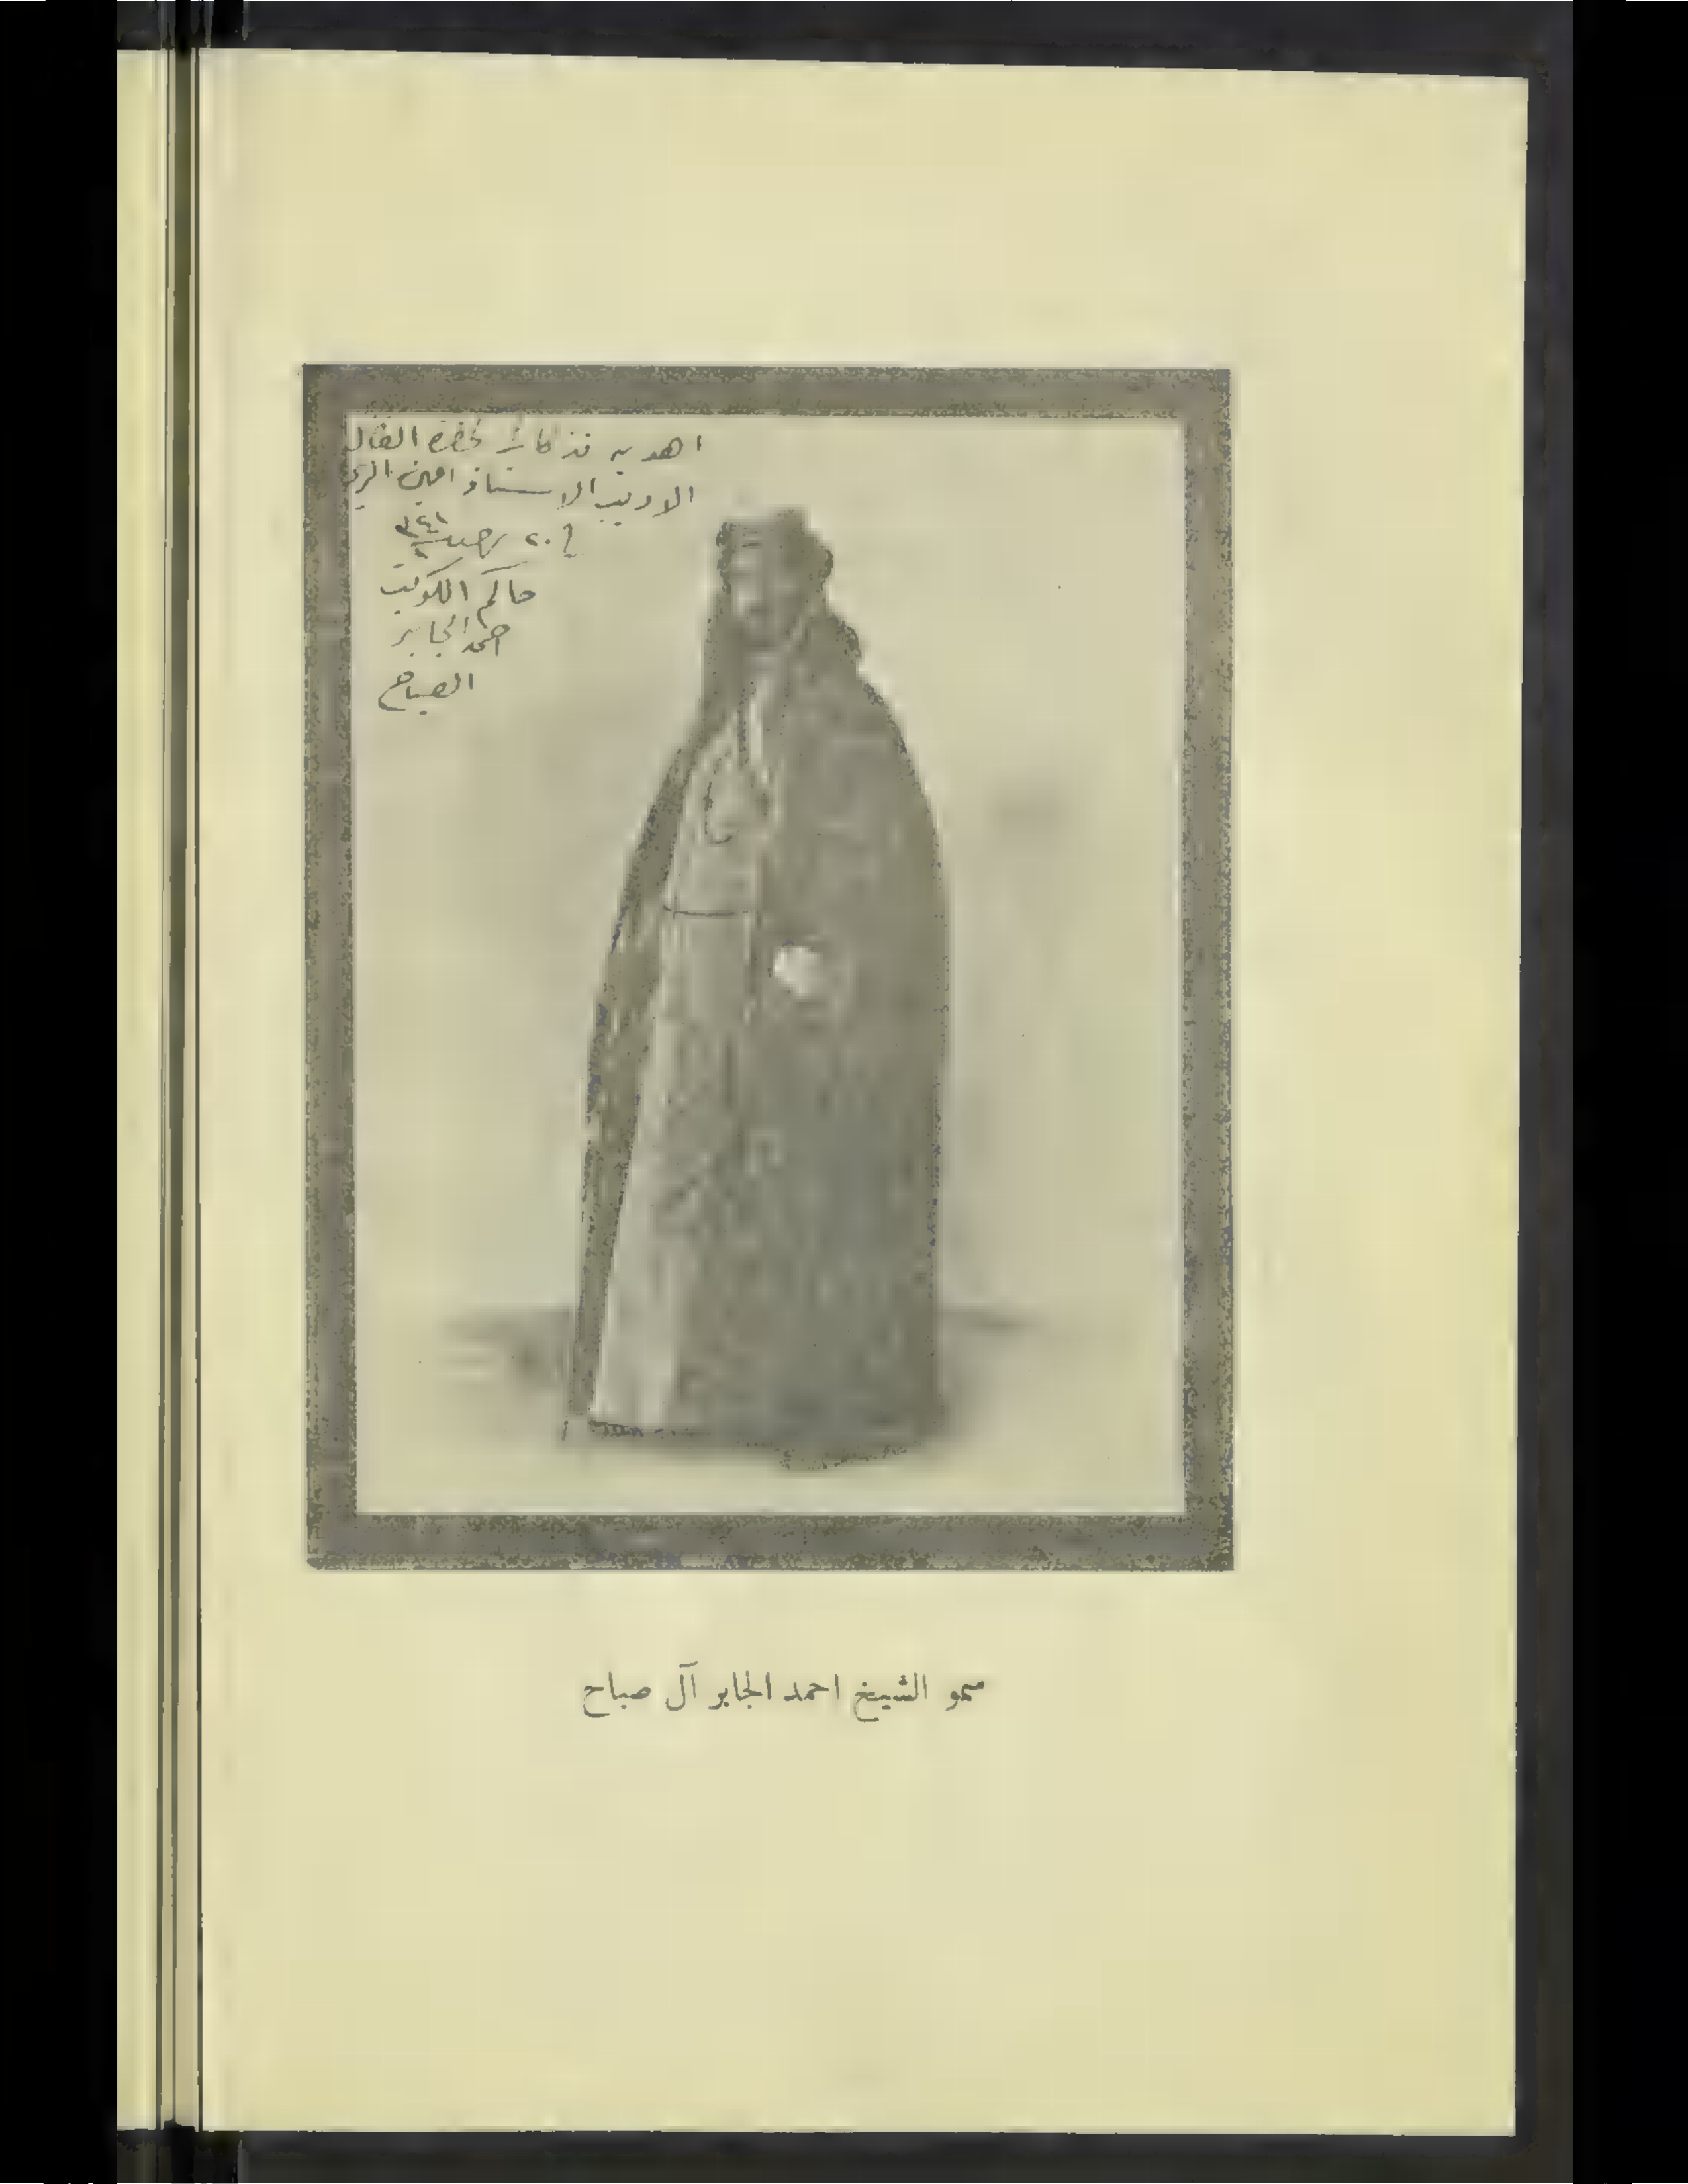 اهديه تذكارا لحضرة الفاضل
الاديب الاستاذ امين الريحا
في ٢٠ رجب ١٣٤١
حاكم الكويت
احمد الجابر
الصباح
سمو الشيخ احمد الجابر آل صباح